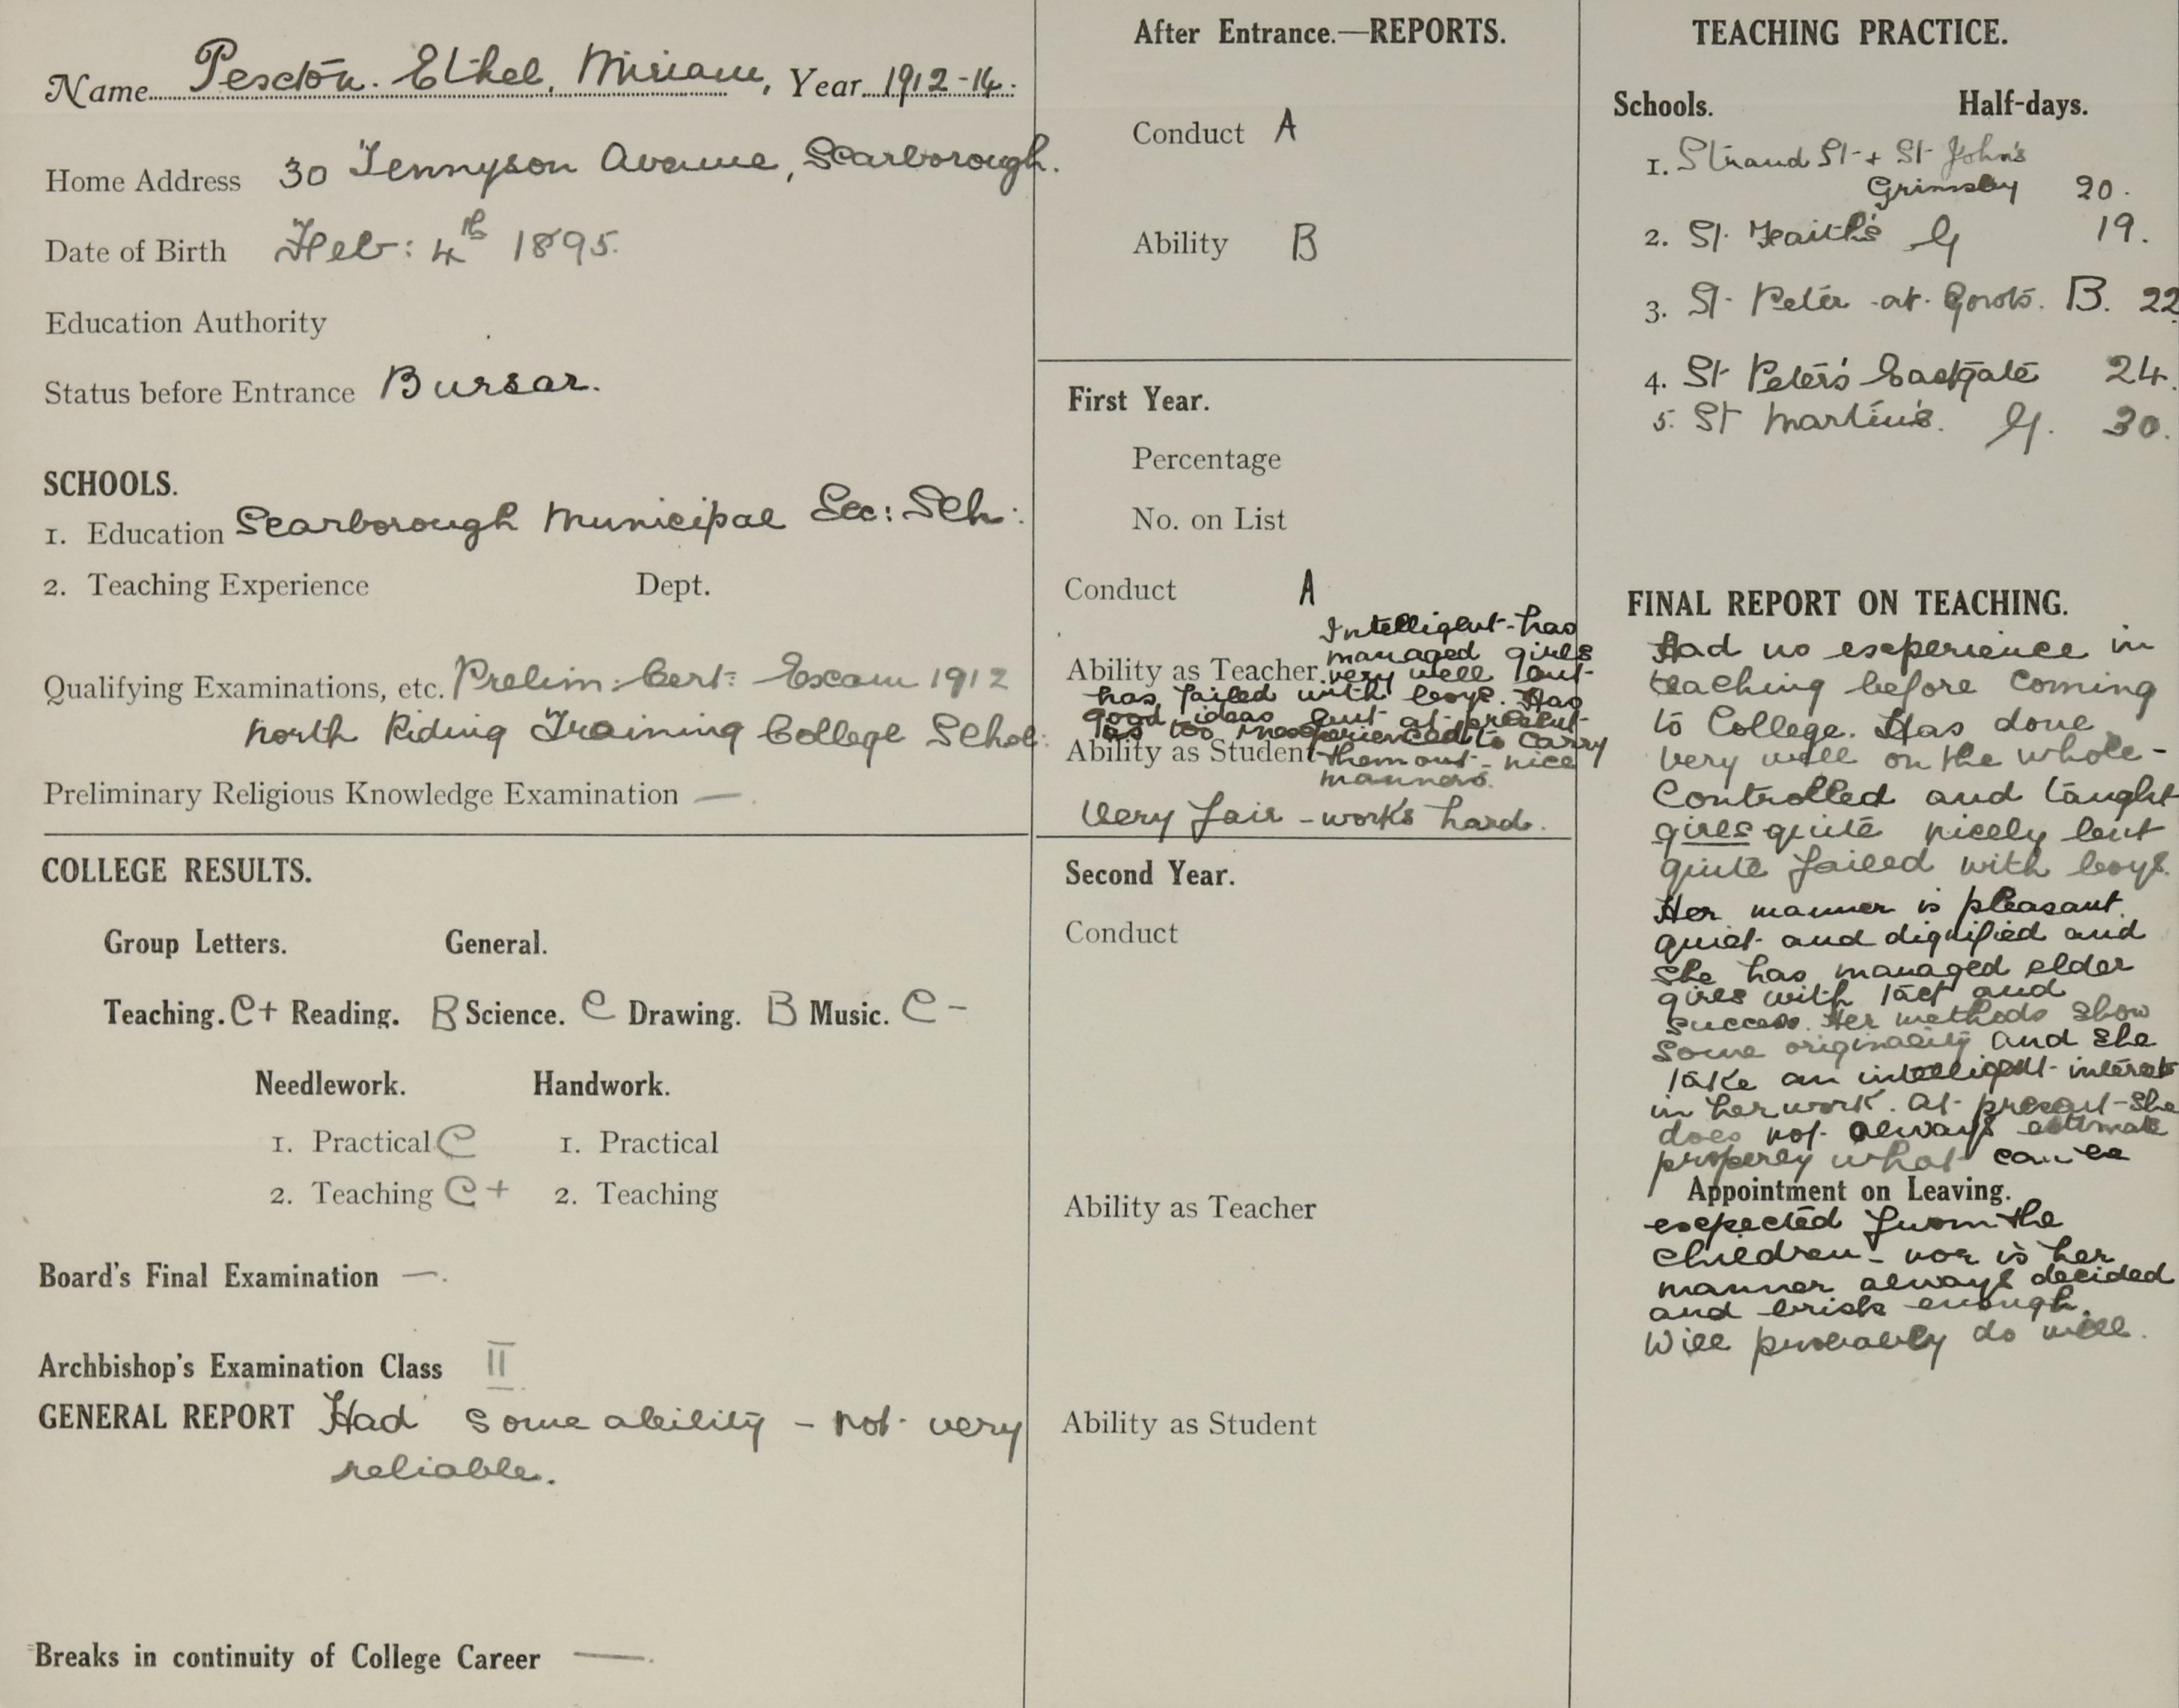 Name Pescton. Ethel, Miriam, Year 1912-14.
Home Address 30 Tennyson Avenue, Scarborough.
Date of Birth Feb: 4th 1895.
Education Authority
Status before Entrance Bursar.
SCHOOLS.
1. Education Scarborough Municipal Sec: Sch:
2. Teaching Experience Dept.
Qualifying Examinations, etc. Prelim: Cert: Exam 1912
North Riding Training College Schol:
Preliminary Religious Knowledge Examination —.
COLLEGE RESULTS.
Group Letters. General.
Teaching. C+ Reading. B Science. C Drawing. B Music. C-
Needlework. Handwork.
1. Practical C 1. Practical
2. Teaching C+ 2. Teaching
Board's Final Examination —.
Archbishop's Examination Class II
GENERAL REPORT Had some ability - not very
reliable.
Breaks in continuity of College Career —.
After Entrance.—REPORTS.
Conduct A
Ability B
First Year.
Percentage
No. on List
Conduct A
Intelligent - has
managed girls
Ability as Teacher. very well but
has failed with boys. Has
good ideas but at present
is too inexperienced to carry
Ability as Student them out - nice
manners.
Very fair - works hard.
Second Year.
Conduct
Ability as Teacher
Ability as Student
TEACHING PRACTICE.
Schools. Half-days.
1. Strand St + St John's
Grimsby 20.
2. St. Faith's G 19.
3. St Peter-at-Gowts. B. 22
4. St Peter's Eastgate 24.
5. St Martin's. G. 30.
FINAL REPORT ON TEACHING.
Had no experience in
teaching before coming
to College. Has done
very well on the whole -
Controlled and taught
girls quite nicely but
quite failed with boys.
Her manner is pleasant
quiet and dignified and
she has managed elder
girls with tact and
success. Her methods show
some originality and she
take an intelligent interest
in her work. At present she
does not always estimate
properly what can be
Appointment on Leaving.
expected from the
children - nor is her
manner always decided
and brisk enough.
Will probably do well.